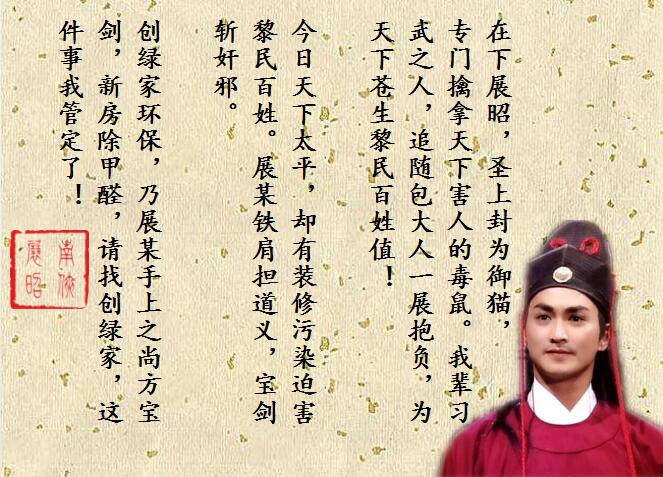 在下展昭，圣上封为御猫，
专门擒拿天下害人的毒鼠。我辈习
武之人，追随包大人一展抱负，为
天下苍生黎民百姓值！
今日天下太平，却有装修污染迫害
黎民百姓。展某铁肩担道义，宝剑
斩奸邪。
创绿家环保，乃展某手上之尚方宝
剑，新房除甲醛，请找创绿家，这
件事我管定了！
南侠
展昭